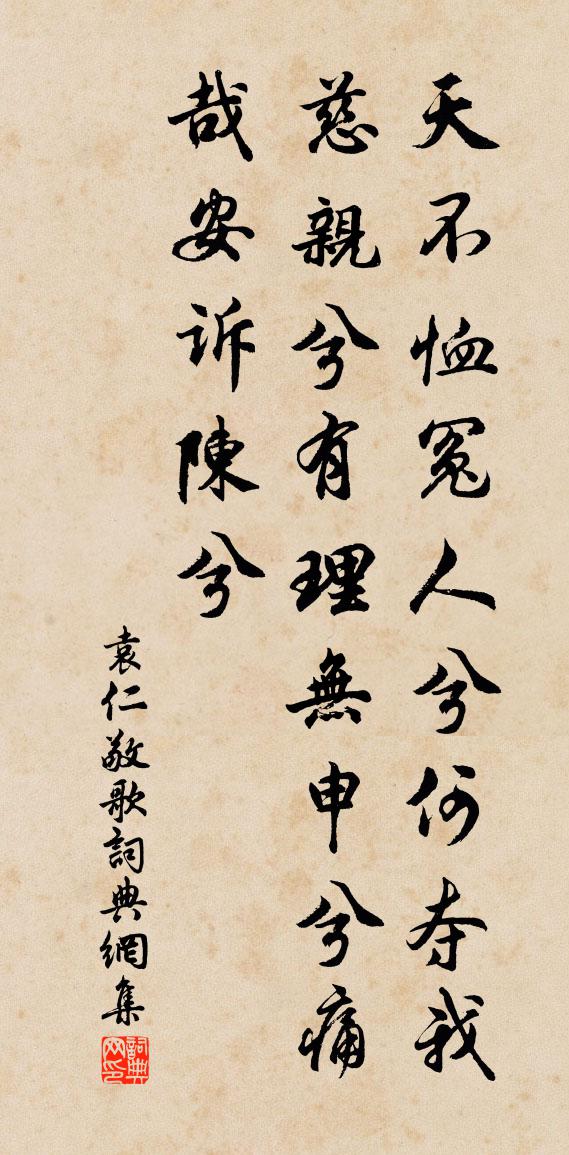 天不恤冤人兮何夺我
慈親兮有理無申兮痛
哉安訴陳兮
袁仁敬歌詞典網集
詞典网印